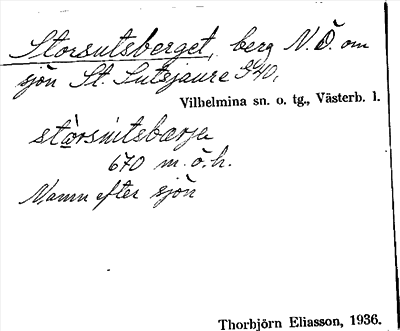 Storsutsberget, berg N.Ö. om
sjön St. Sutsjaure G40,
Vilhelmina sn. o. tg., Västerb. l.
670 m.ö.h.
Namn efter sjön
Thorbjörn Eliasson, 1936.